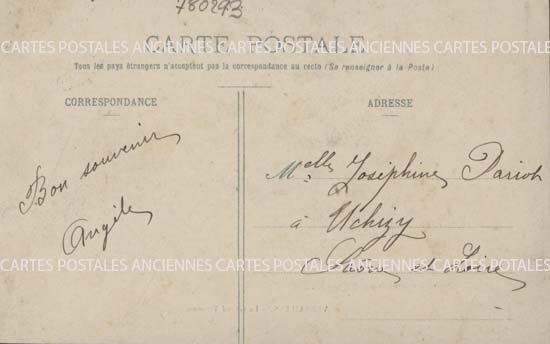 780293
CARTE POSTALE
Tous les pays étrangers n'acceptent pas la correspondance au recto (Se renseigner à la Poste)
CORRESPONDANCE
ADRESSE
Bon souvenir
Angèle
Melle Joséphine Pariot
à Uchizy
Saône et Loire
CARTES POSTALES ANCIENNES CARTES POSTALES ANCIENNES CARTES POSTALES
CARTES POSTALES ANCIENNES CARTES POSTALES ANCIENNES CARTES POSTALES